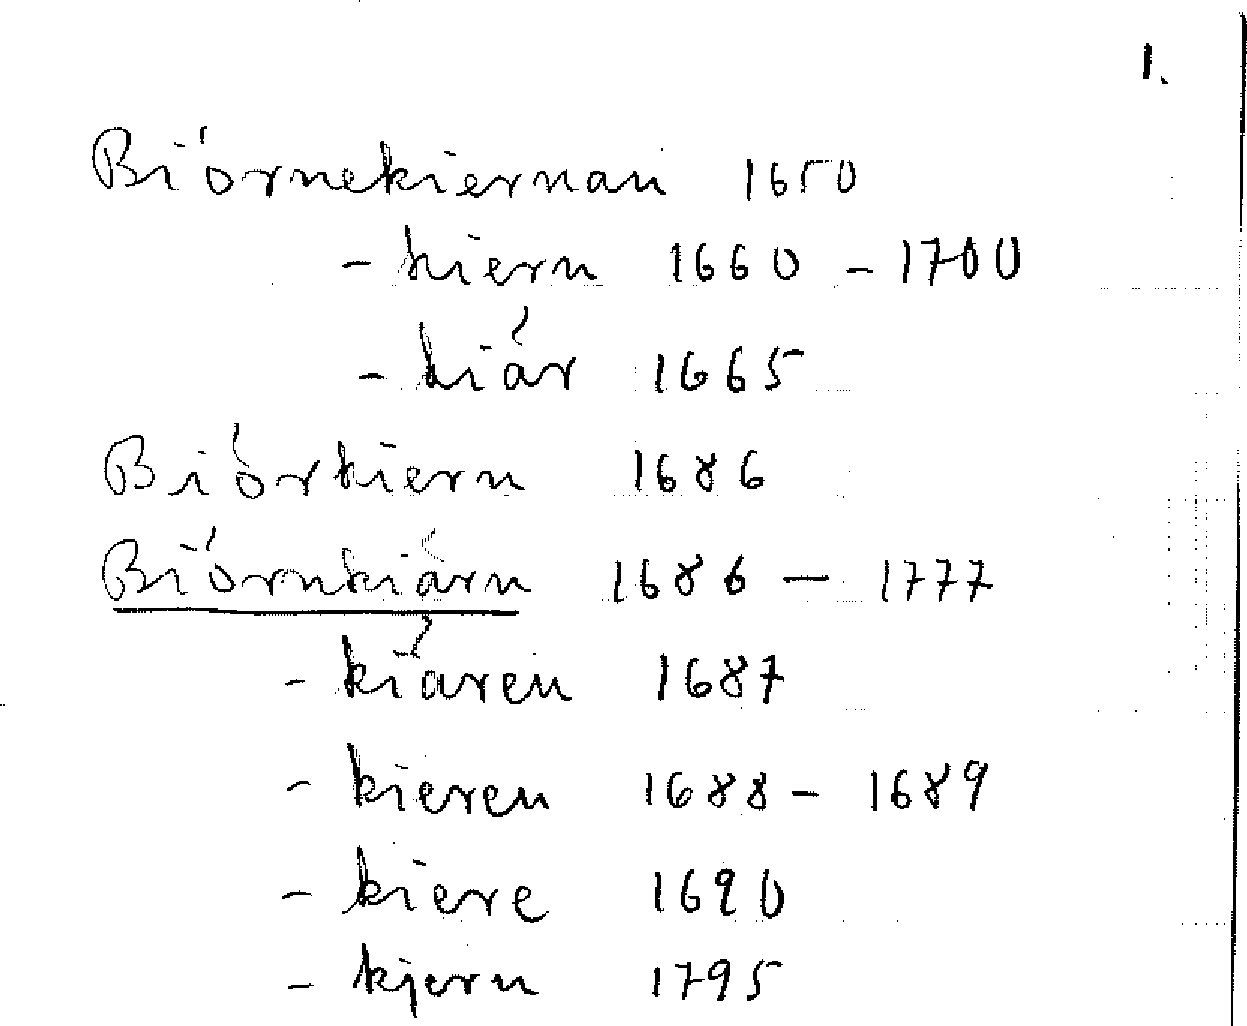 1.
Biórnekiernan 1650
- kiern 1660 - 1700
- kiár 1665
Biórkiern 1686
Biórnkiárn 1686 - 1777
- kiáren 1687
- kieren 1688 - 1689
- kiere 1690
- kjern 1795